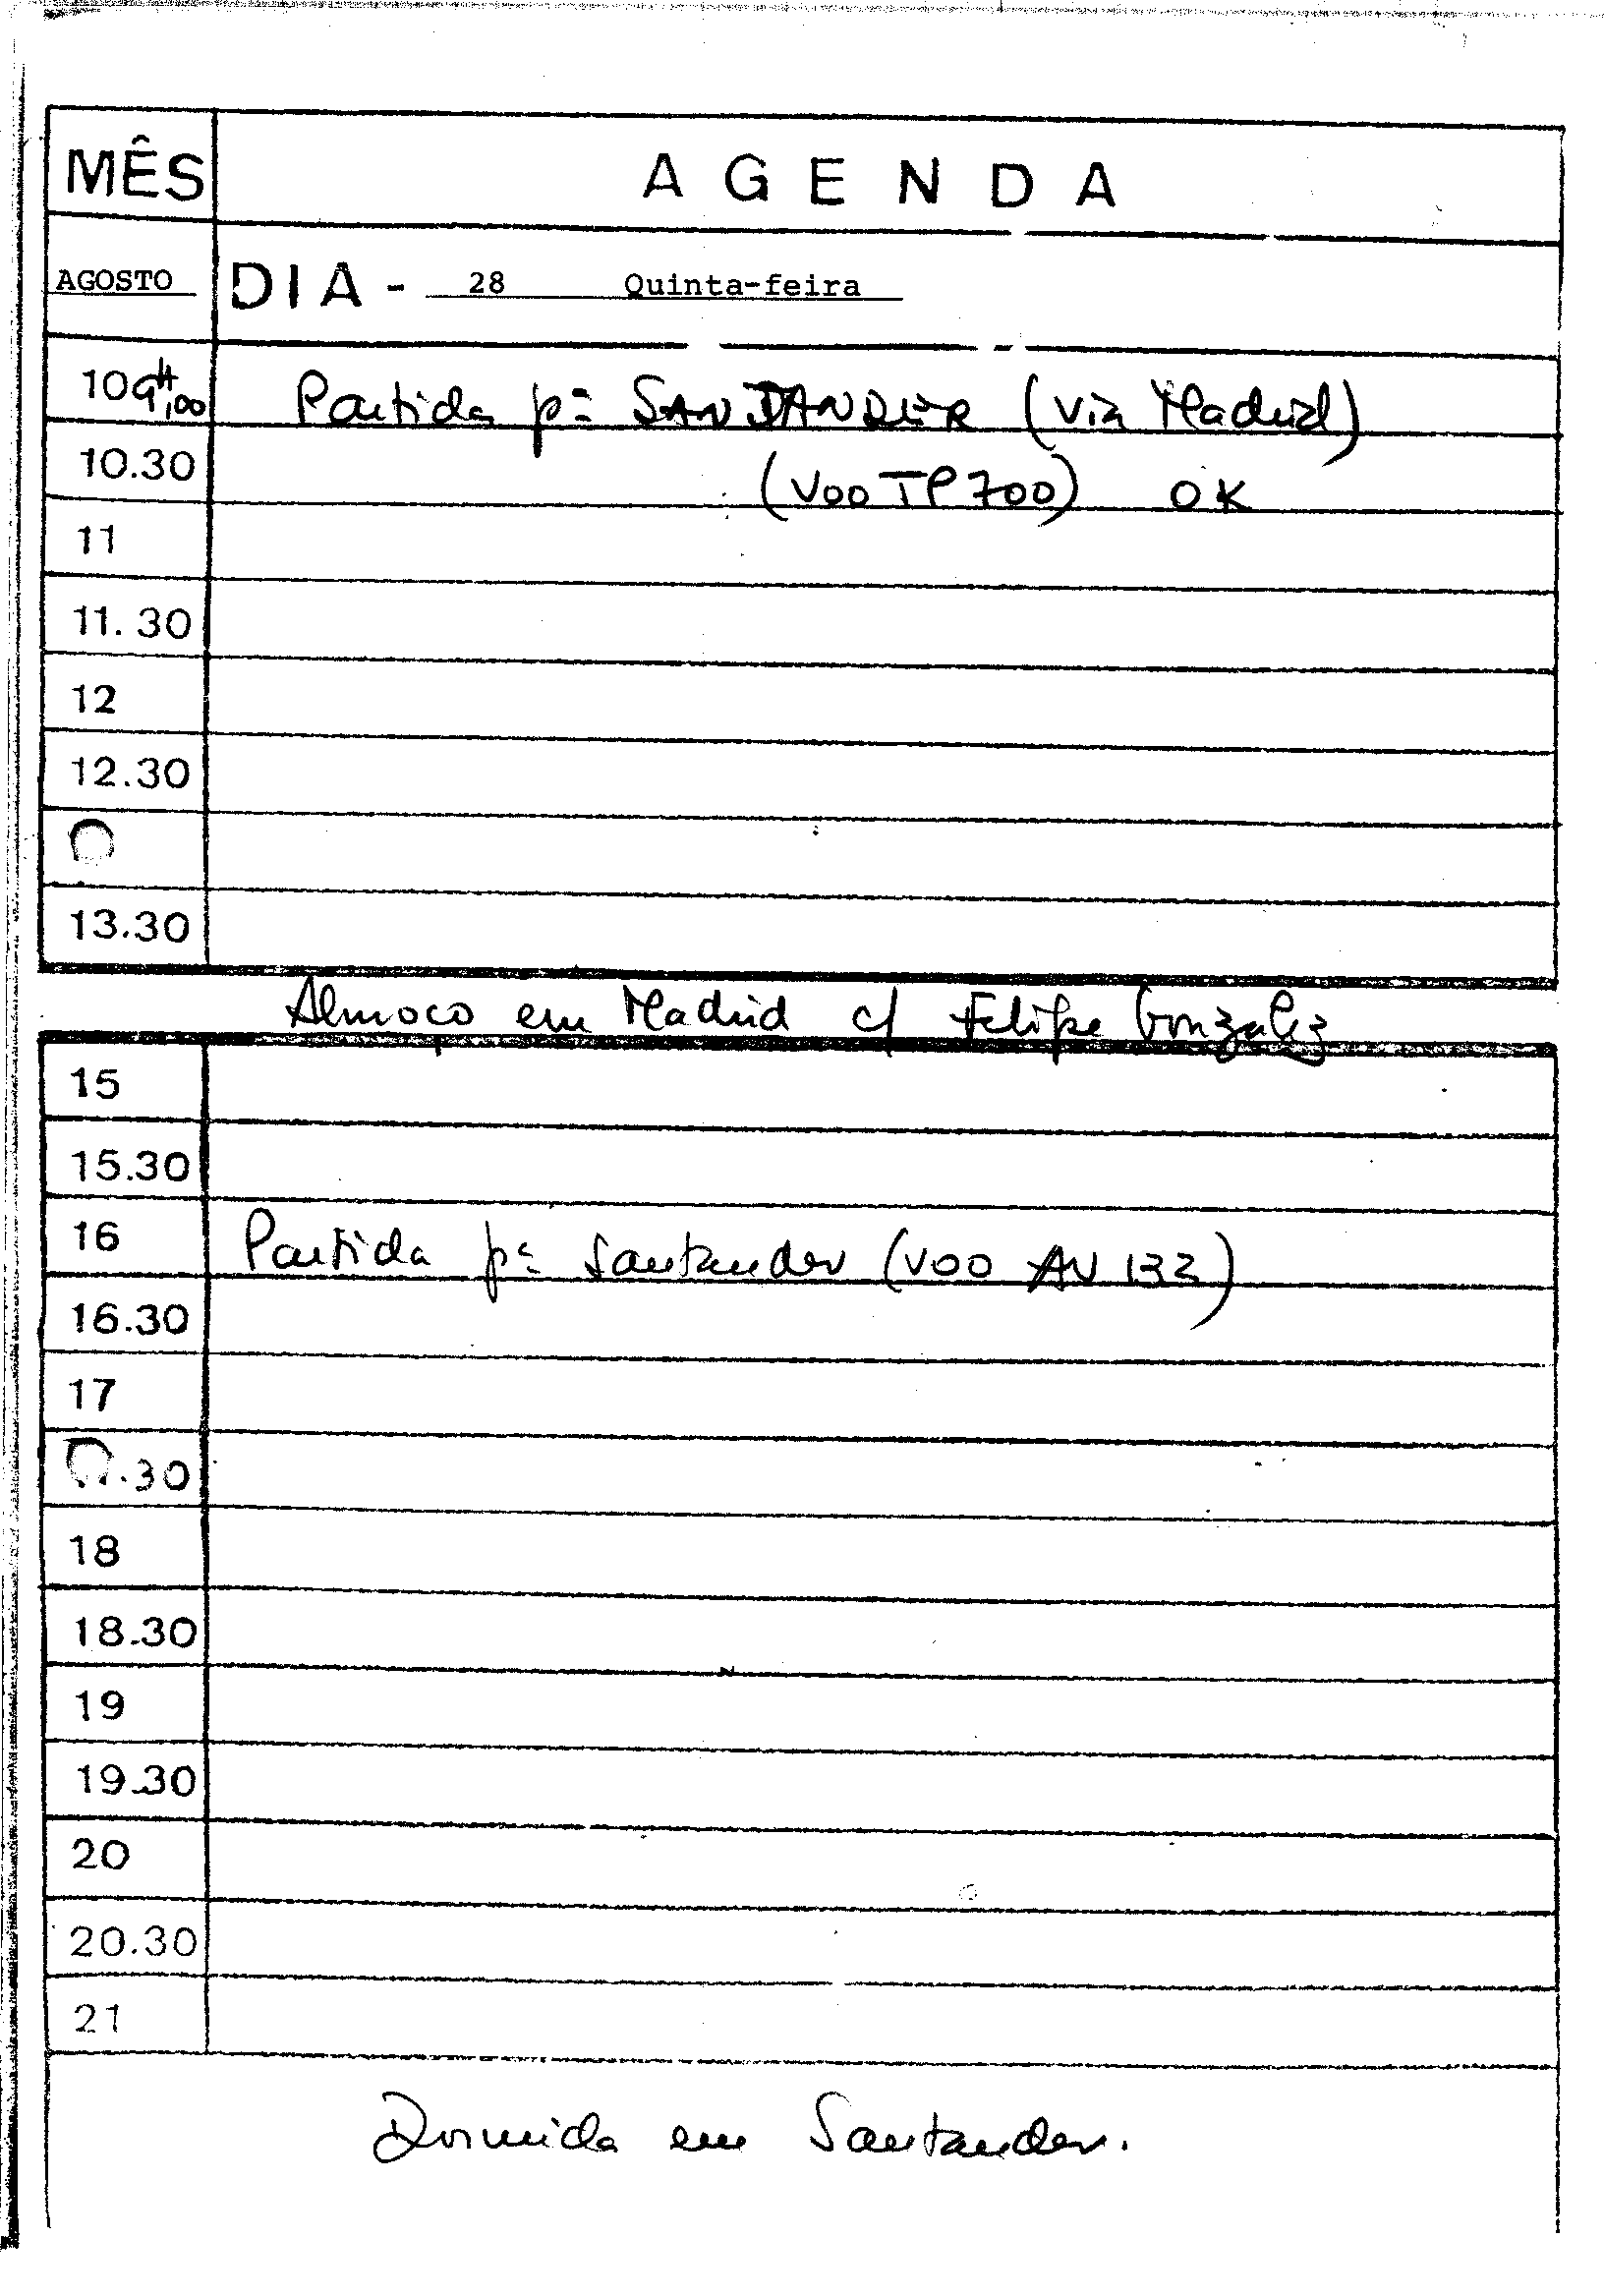 MÊS AGENDA
AGOSTO DIA - 28 Quinta-feira
10 9H,00 Partida pª SANTANDER (via Madrid)
10.30 (VOO TP 700) OK
11
11.30
12
12.30
13.30
Almoço em Madrid c/ Felipe Gonzalez
15
15.30
16 Partida pª Santander (VOO AV 132)
16.30
17
.30
18
18.30
19
19.30
20
20.30
21
Dormida em Santander.